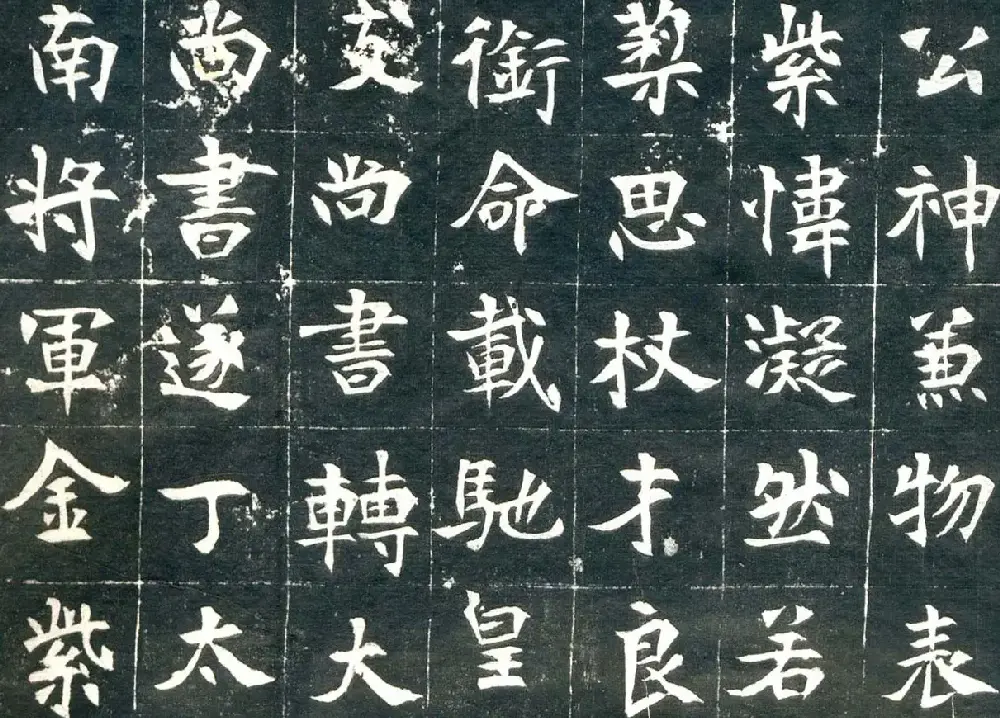 公神兼物表
紫幃凝然若
栔思杖才良
衘命載馳皇
交尚書轉大
尚書遂丁太
南將軍金紫